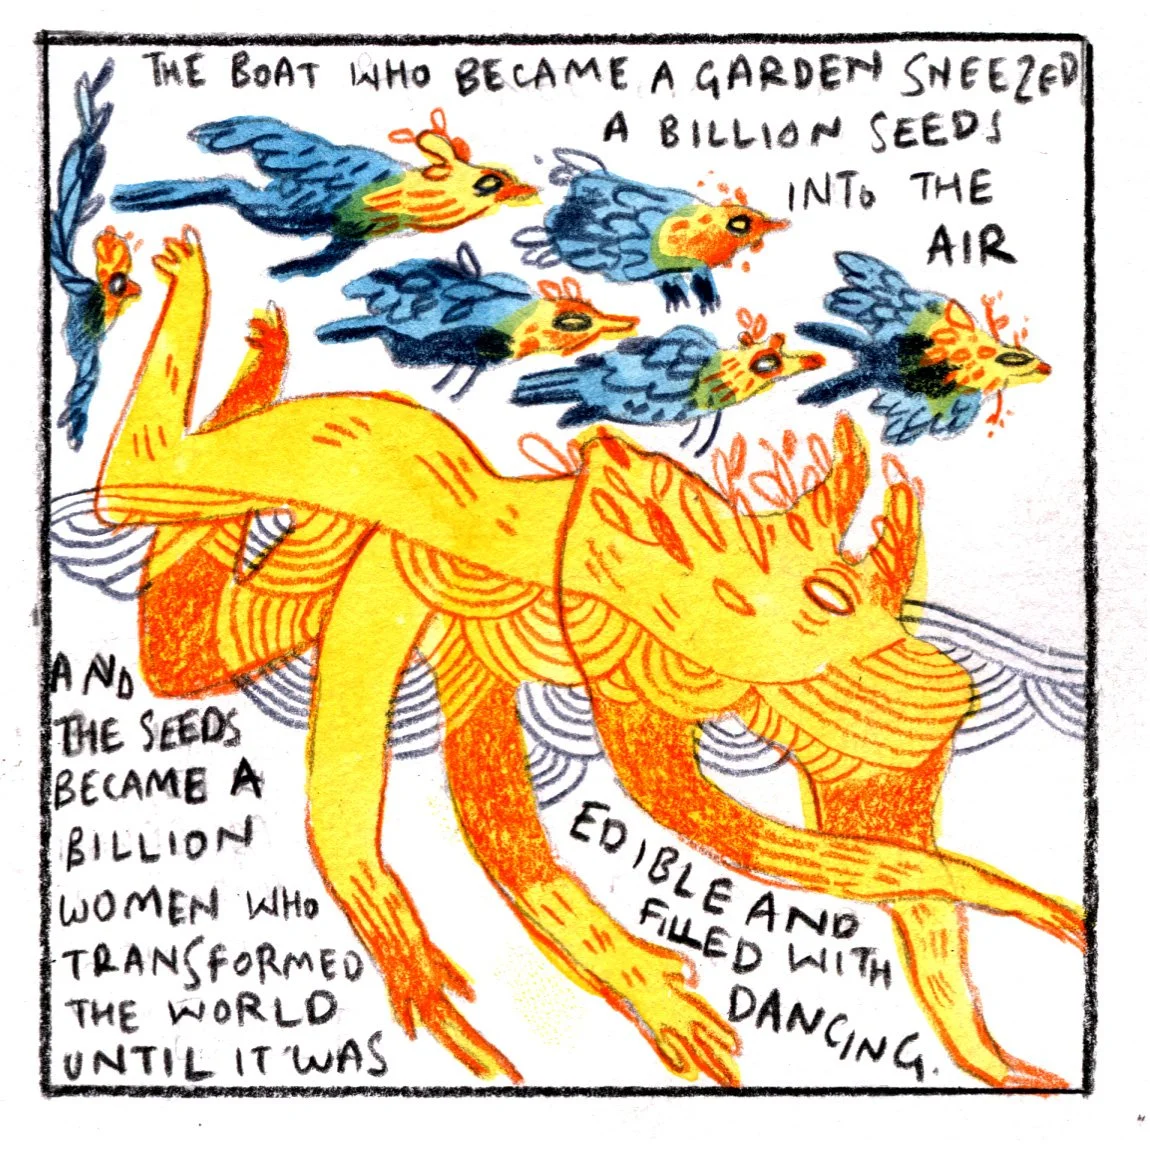 THE BOAT WHO BECAME A GARDEN SNEEZED
A BILLION SEEDS
INTO THE
AIR
AND
THE SEEDS
BECAME A
BILLION
WOMEN WHO
TRANSFORMED
THE WORLD
UNTIL IT WAS
EDIBLE AND
FILLED WITH
DANCING.